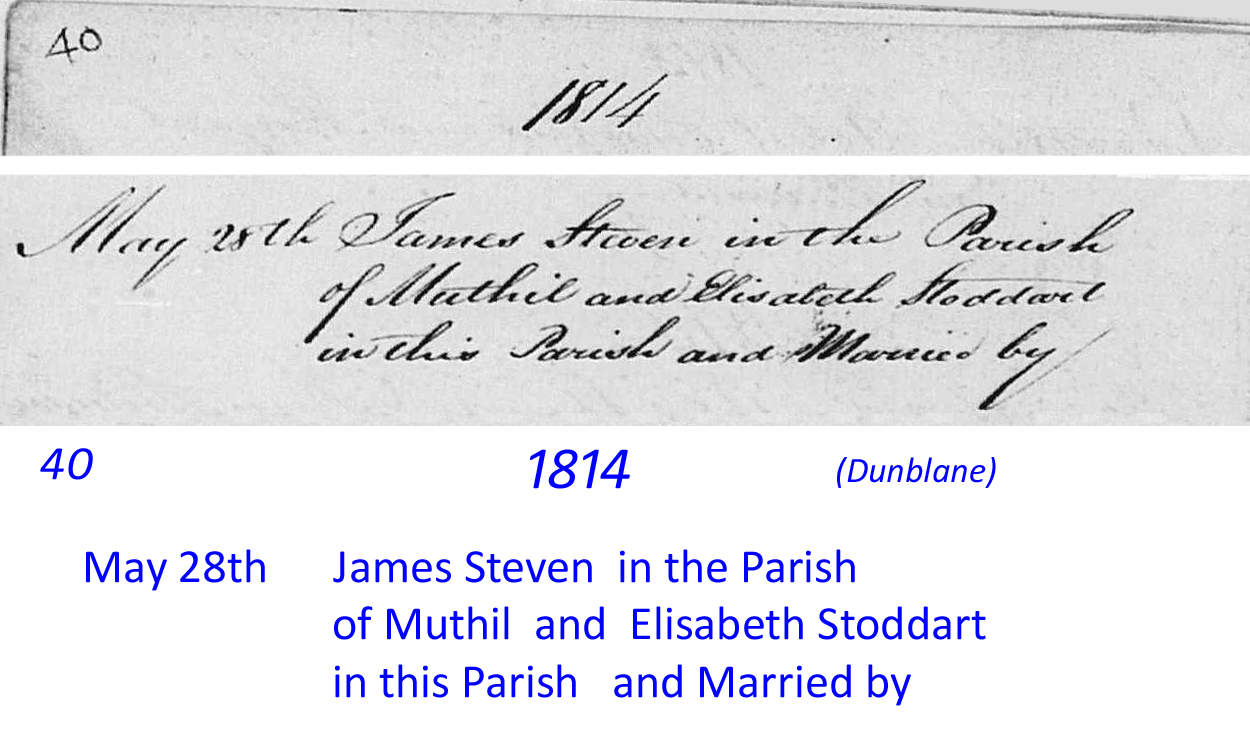 40
1814
May 28th James Steven in the Parish
of Muthil and Elisabeth Stoddart
in this Parish and Married by
40 1814 (Dunblane)
May 28th James Steven in the Parish
of Muthil and Elisabeth Stoddart
in this Parish and Married by